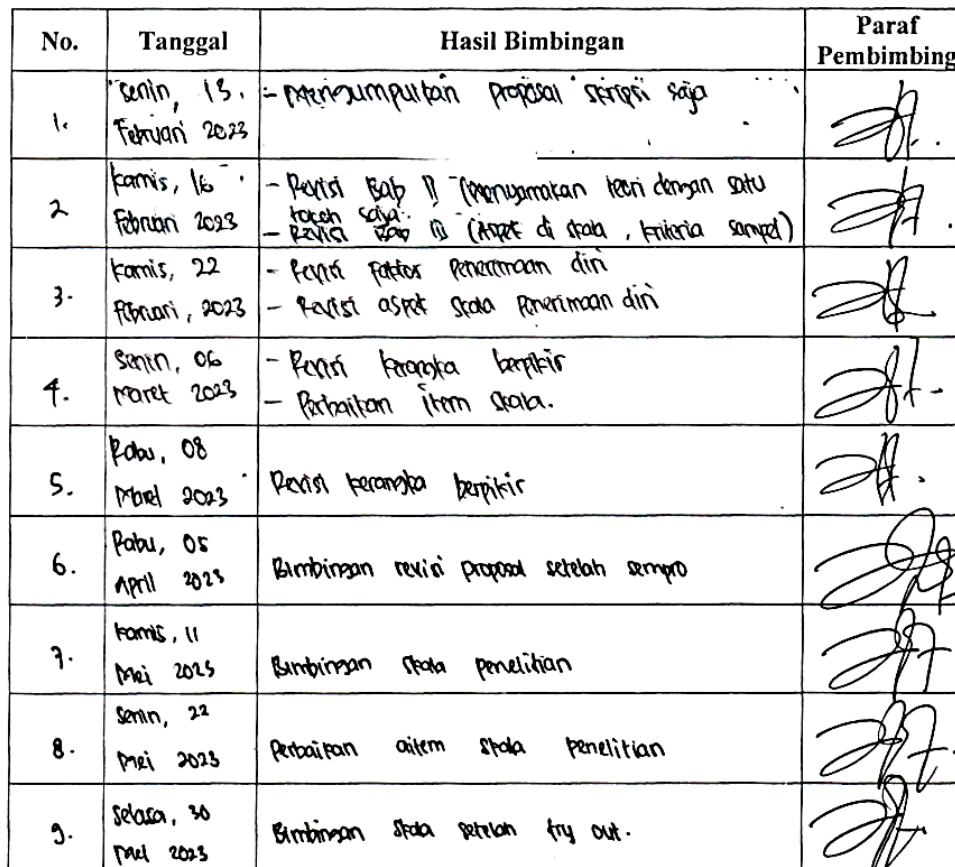 No. Tanggal Hasil Bimbingan Paraf
Pembimbing
1. Senin, 13. - Mengumpulkan proposal skripsi saja
Februari 2023
2 Kamis, 16 - Revisi Bab II (Menyamakan teori dengan satu
tokoh saja.
Februari 2023 - Revisi Bab III (Aspek di skala, kriteria sampel)
3. Kamis, 22 - Revisi Faktor Penerimaan diri
Februari, 2023 - Revisi aspek skala Penerimaan diri
4. Senin, 06 - Revisi kerangka berpikir
Maret 2023 - Perbaikan item skala.
5. Rabu, 08
Maret 2023 Revisi kerangka berpikir
6. Rabu, 05
April 2023 Bimbingan revisi proposal setelah sempro
7. Kamis, 11
Mei 2023 Bimbingan skala penelitian
8. Senin, 22
Mei 2023 Perbaikan aitem skala penelitian
9. Selasa, 30
Mei 2023 Bimbingan skala setelah try out.